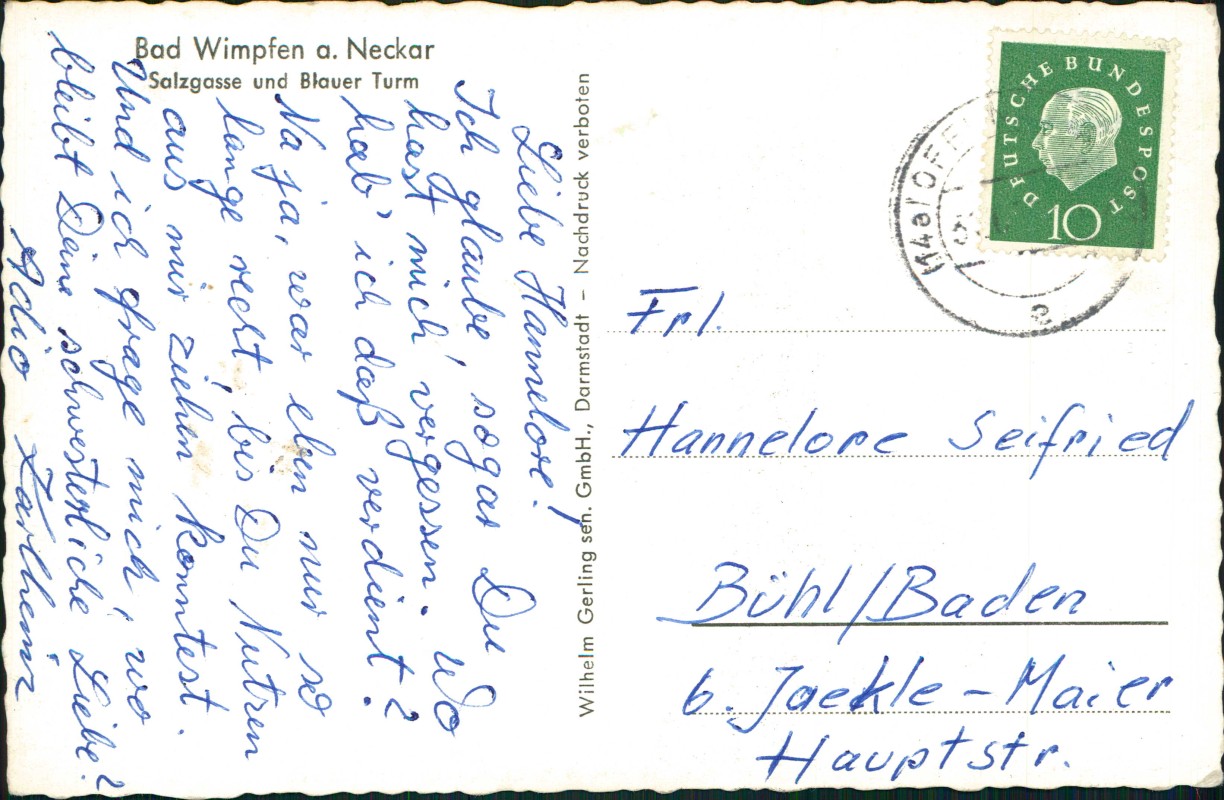 Bad Wimpfen a. Neckar
Salzgasse und Blauer Turm
Liebe Hannelore!
Ich glaube, sogar Du
hast mich vergessen. Wo
hab' ich daß verdient?
Na ja, war eben nur so
lange recht, bis Du Nutzen
aus mir ziehen konntest.
Und ich frage mich, wo
bleibt Deine schwesterliche Liebe?
Adio Karlheinz
Wilhelm Gerling sen. GmbH., Darmstadt – Nachdruck verboten
DEUTSCHE BUNDESPOST
10
(14a) OFF
e
Frl.
Hannelore Seifried
Bühl/Baden
b. Jaekle-Maier
Hauptstr.